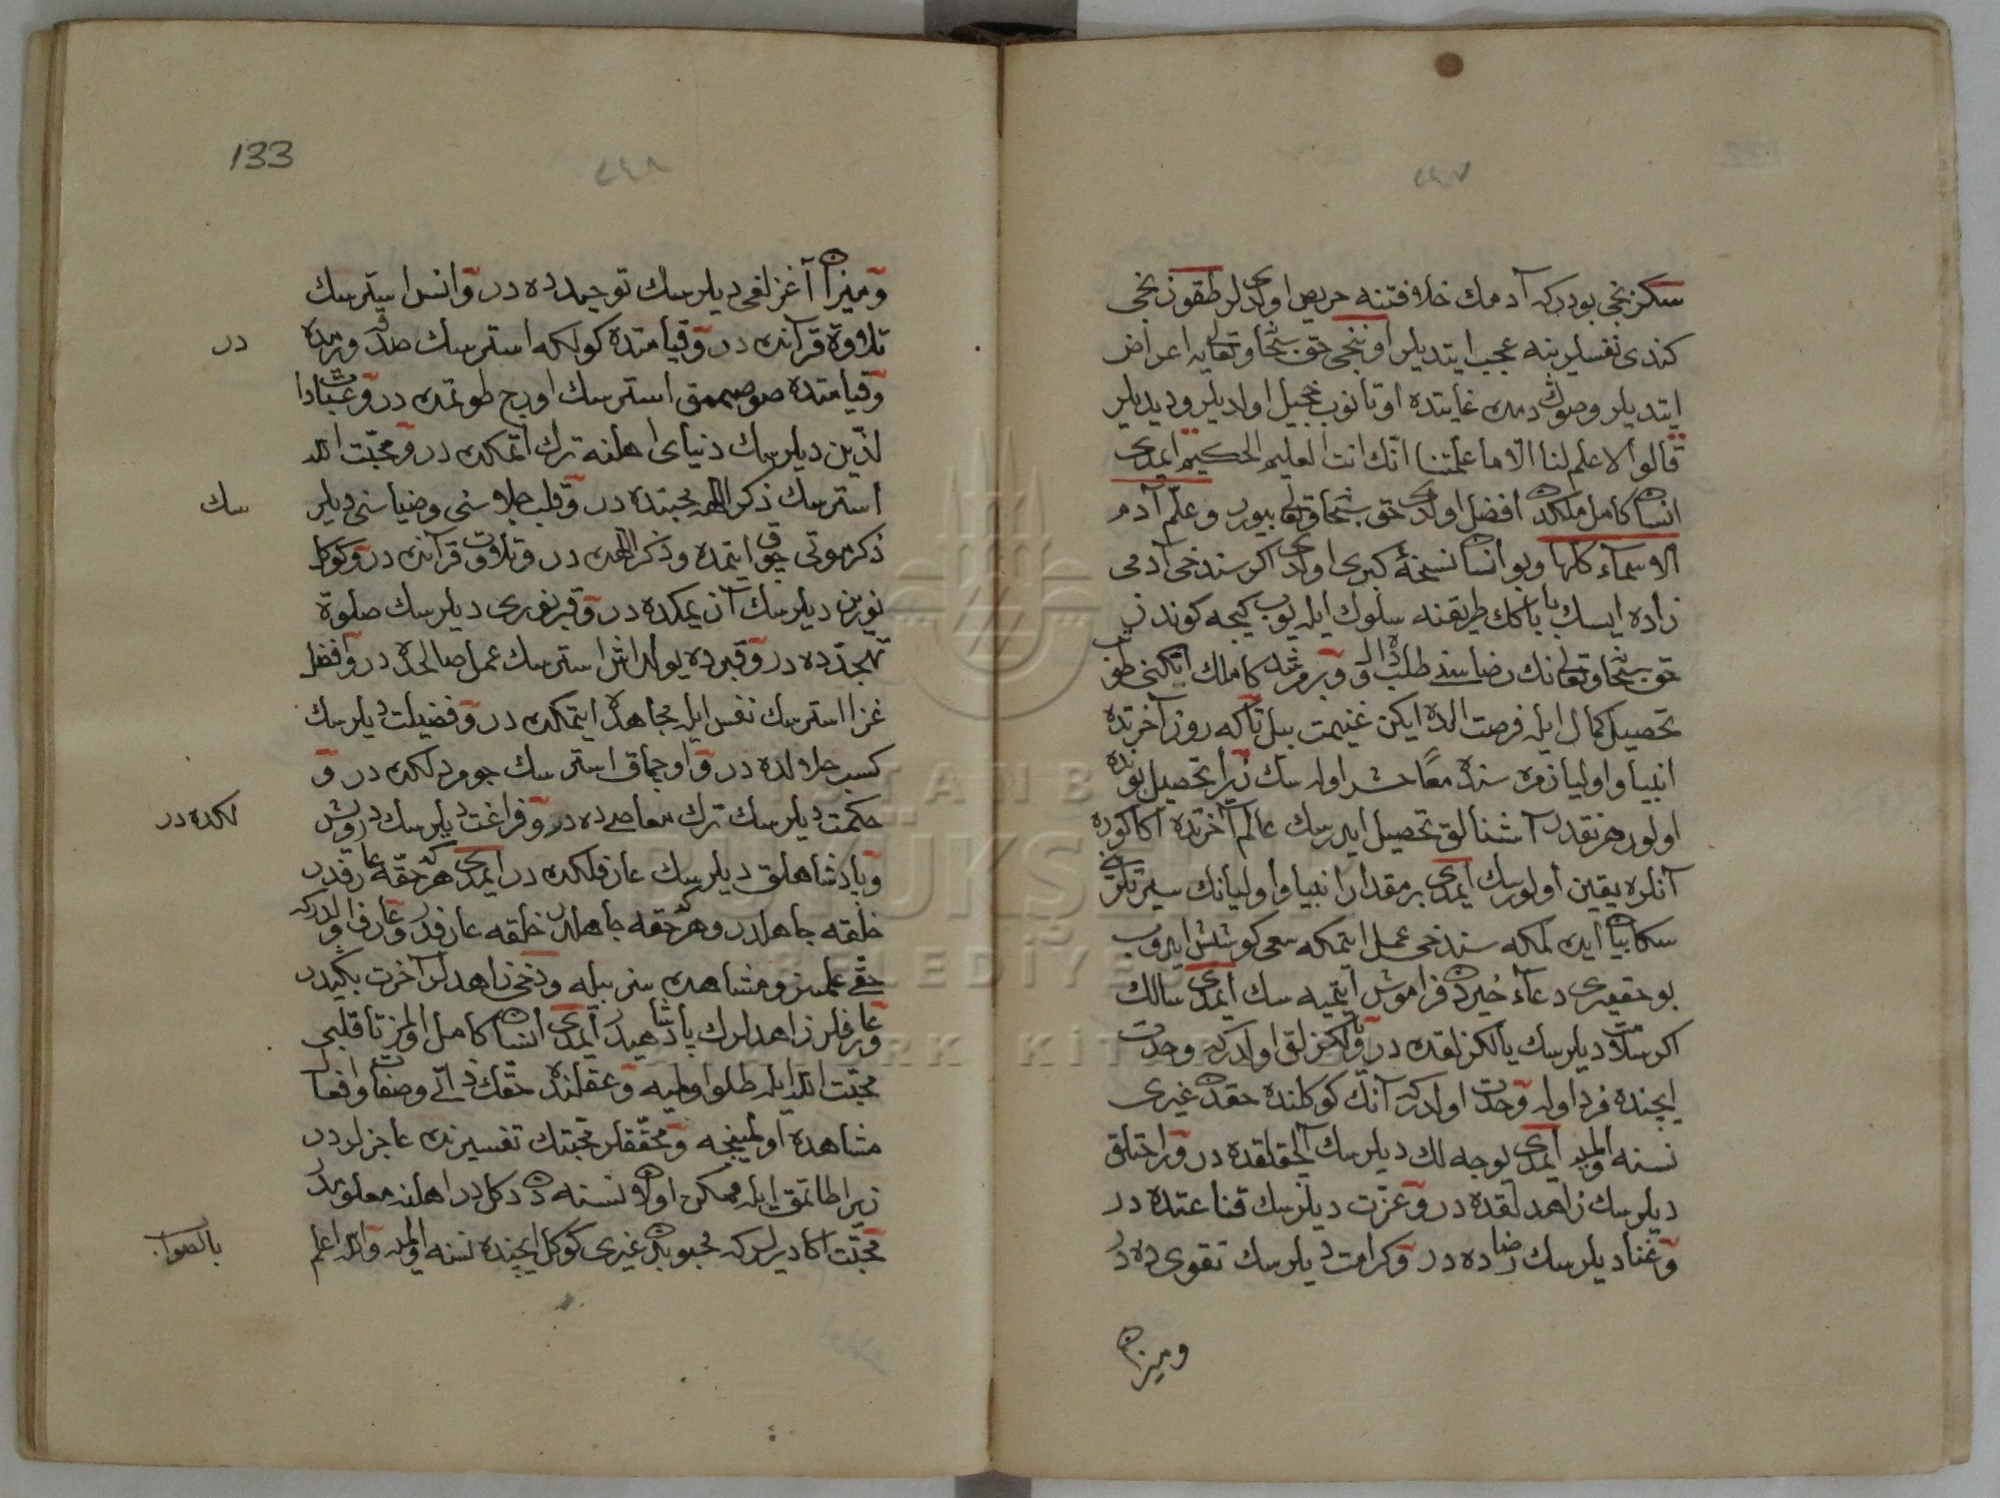 ٢٤٧
سكزنجى بودركه آدمك خلافتنه حريص اولديلر طقوزنجى
كندى نفسلرينه عجب ايتديلر اوننجى حق سبحانه وتعالى يه اعراض
ايتديلر وصوڭ دمده غايتده اوتانوب خجيل اولديلر وديديلر
قالوا لا علم لنا الا ما علمتنا انّك انت العليم الحكيم ايمدى
انسان كامل ملكدن افضل اولدى حق سبحانه وتعالى بيورر وعلّم آدم
الاسماء كلّها وبو انسان نسخهٔ كبرى اولدى اكر سن دخى آدمى
زاده ايسك باباڭك طريقنه سلوك ايليوب كيجه كوندز
حق سبحانه وتعالى نك رضاسنده طلبده اول و بر مرشد كاملك اتكنى طوتوب
تحصيل كمال ايله فرصت الده ايكن غنيمت بيل تا كه روز آخرتده
انبيا واوليا زمره سنده معًا حشر اوله سك زيرا تحصيل بونده
اولور هر نقدر آشنالق تحصيل ايدرسك عالم آخرتده اكا كوره
آنلره يقين اولورسك ايمدى بر مقدار انبيا واوليانك سيرتلرين
سكا بيان ايدهلمكه سن دخى عمل ايتمكه سعى كوشش ايدوب
بو حقيرى دعاء خيردن فراموش ايتميه سك ايمدى سالك
اكر سلامت ديلرسك يالكزلقده در ويالكزلق اولدركه وحدت
ايچنده فرد اوله وحدت اولدركه آنك كوكلنده حقدن غيرى
نسنه اولميه ايمدى يوجه لك ديلرسك آلچقلقده در وراحتلق
ديلرسك زاهدلقده در وعزّت ديلرسك قناعتده در
وغنا ديلرسك رضاده در وكرامت ديلرسك تقوى ده در
وميزان
133
٢٤٨
وميزان آغزلغى ديلرسك توحيدده در وانس استرسك
تلاوة قرآنده در وقيامتده كولكه استرسك صدقه ويرمده
در
وقيامتده صوصممق استرسك اورج طوتمده در وعبادا
لذّين ديلرسك دنياى اهلنه ترك اتمكده در ومحبّت الله
استرسك ذكر الله محبتده در وقلب جلاسنى وضياسنى ديلر
سك
ذكر موتى چوق ايتمده وذكر اللهده در وتلاوت قرآنده در وكوكل
نورين ديلرسك آز يمكده در وقبر نورى ديلرسك صلوة
تهجدده در وقبرده يولداش استرسك عمل صالحده در وافضل
غزا استرسك نفس ايله مجاهده ايتمكده در وفضيلت ديلرسك
كسب حلالده در و اوجماق استرسك جومردلكده در و
حكمت ديلرسك ترك معاصى ده در وفراغت ديلرسك درويش
لكده در
وپادشاهلق ديلرسك عارفلكده در ايمدى هر كه حقّه عارفدر
خلقه جاهلدر وهر كه حقه جاهلدر خلقه عارفدر وعارف اولدركه
حقّى علمسز ومشاهده سز بيله ودخى زاهدلر آخرت بكيدر
وعارفلر زاهدلرك پادشاهيدر ايمدى انسان كامل اولمز تا قلبى
محبّت الله ايله طلو اولميه وعقلنده حقّك ذاتى وصفات وافعال
مشاهده اولمينجه ومحقّقلر محبتك تفسيرنده عاجزلردر
زيرا طاتمق ايله ممكن اولان نسنه دن دكلدر اهلنه معلومدر
محبّت اكا ديرلركه محبوبدن غيرى كوكل ايچنده نسنه اولميه والله اعلم
بالصواب